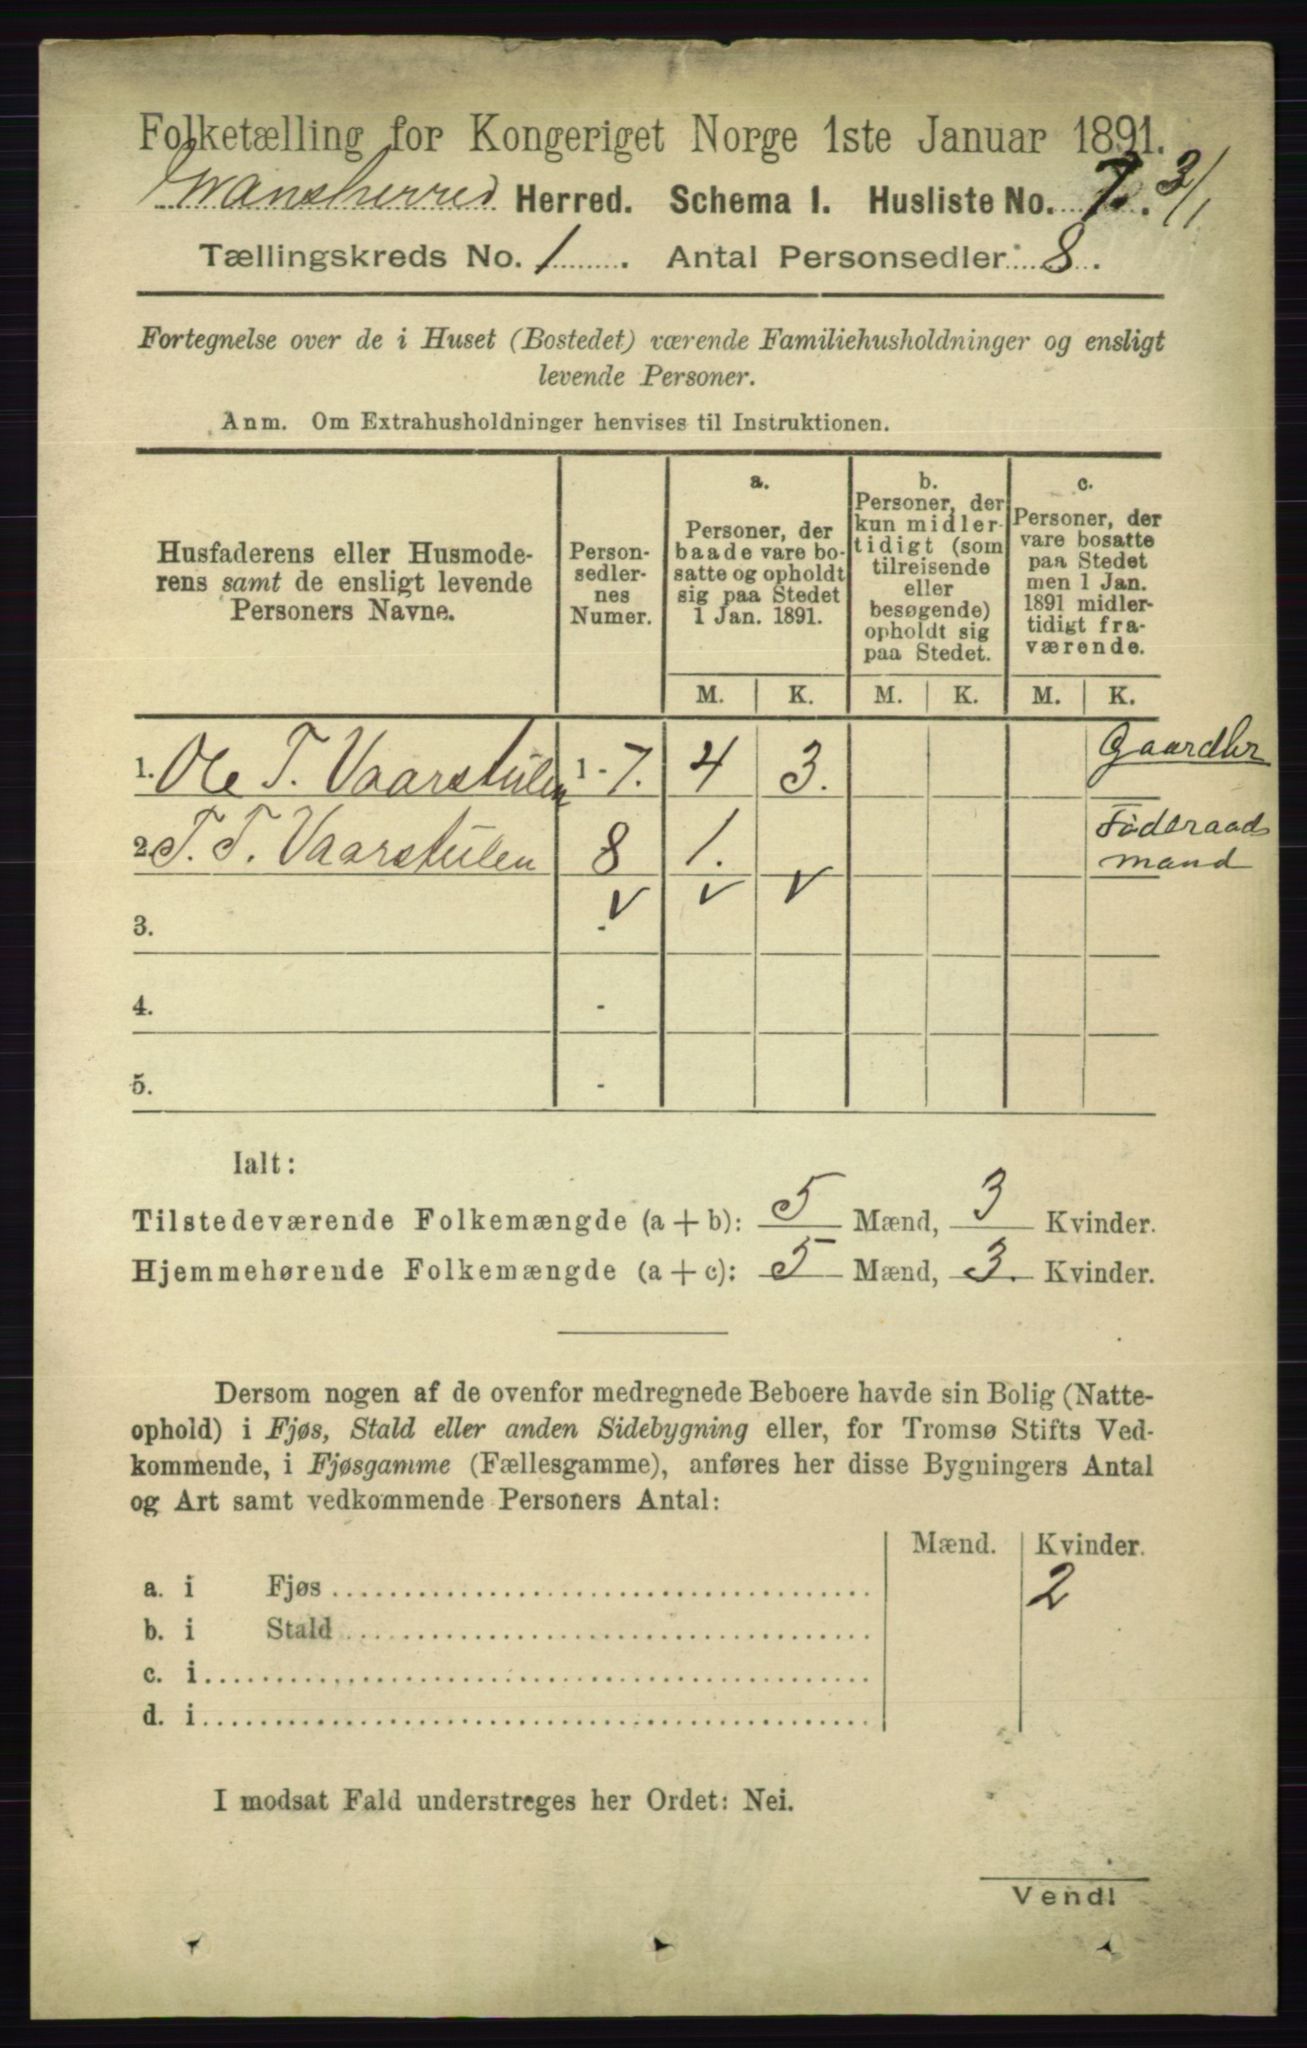 Folketælling for Kongeriget Norge 1ste Januar 1891.
Gransherred Herred. Schema I. Husliste No. 7. 3/1
Tællingskreds No. 1. Antal Personsedler 8.
Fortegnelse over de i Huset (Bostedet) værende Familiehusholdninger og ensligt
levende Personer.
Anm. Om Extrahusholdninger henvises til Instruktionen.
Husfaderens eller Husmode-
rens samt de ensligt levende
Personers Navne.
Person-
sedler-
nes
Numer.
a.
Personer, der
baade vare bo-
satte og opholdt
sig paa Stedet
1 Jan. 1891.
b.
Personer, der
kun midler-
tidigt (som
tilreisende
eller
besøgende)
opholdt sig
paa Stedet.
c.
Personer, der
vare bosatte
paa Stedet
men 1 Jan.
1891 midler-
tidigt fra-
værende.
M. K. M. K. M. K.
1. Ole T. Vaarstulen 1-7. 4 3. Gaardbr
2. T. T. Vaarstulen 8 1. Föderaads
mand
3. -
4. -
5. -
Ialt:
Tilstedeværende Folkemængde (a + b): 5 Mænd, 3 Kvinder.
Hjemmehørende Folkemængde (a + c): 5 Mænd, 3. Kvinder.
Dersom nogen af de ovenfor medregnede Beboere havde sin Bolig (Natte-
ophold) i Fjøs, Stald eller anden Sidebygning eller, for Tromsø Stifts Ved-
kommende, i Fjøsgamme (Fællesgamme), anføres her disse Bygningers Antal
og Art samt vedkommende Personers Antal:
Mænd. Kvinder.
a. i Fjøs 2
b. i Stald
c. i
d. i
I modsat Fald understreges her Ordet: Nei.
Vend!